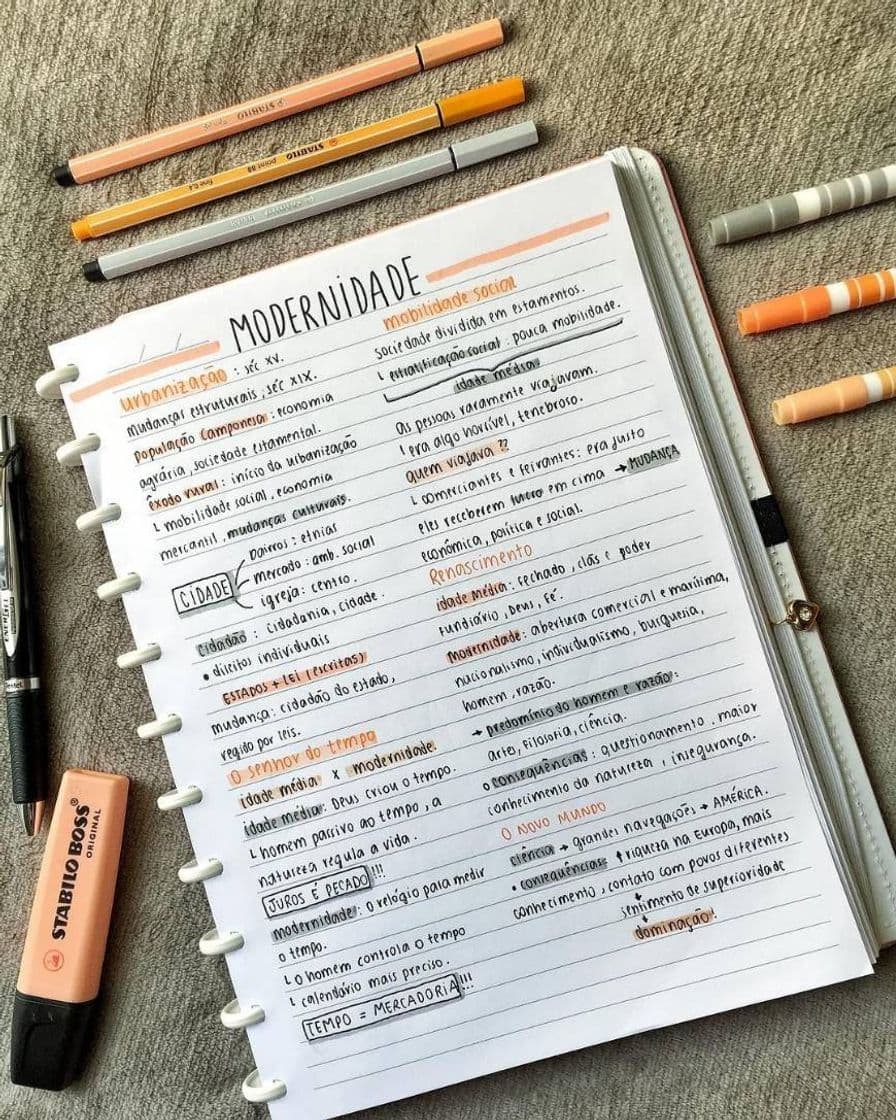 MODERNIDADE
urbanização : séc XV.
mudanças estruturais, séc XIX.
População Camponesa : economia
agrária, sociedade estamental.
êxodo rural : início da urbanização
↳ mobilidade social, economia
mercantil, mudanças culturais.
CIDADE
bairros : etnias
mercado : amb. social
igreja : centro.
Cidadão : cidadania, cidade.
• direitos individuais
ESTADOS + LEI (escritas)
mudança: cidadão do estado,
regido por leis.
O senhor do tempo
idade média x modernidade.
idade média : Deus criou o tempo.
↳ homem passivo ao tempo, a
natureza regula a vida.
JUROS É PECADO!!!
modernidade : o relógio para medir
o tempo.
↳ o homem controla o tempo
↳ calendário mais preciso.
TEMPO = MERCADORIA!!!
mobilidade social
sociedade dividida em estamentos.
↳ estratificação social : pouca mobilidade.
idade média
as pessoas raramente viajavam.
↳ era algo horrível, tenebroso.
quem viajava ??
↳ comerciantes e feirantes : era justo
eles receberem lucro em cima → MUDANÇA
econômica, política e social.
Renascimento
idade média : fechado, clãs e poder
fundiário, Deus, fé.
Modernidade : abertura comercial e marítima,
nacionalismo, individualismo, burguesia,
homem, razão.
→ predomínio do homem e razão :
arte, filosofia, ciência.
o consequências : questionamento. maior
conhecimento da natureza, insegurança.
O NOVO MUNDO
ciência → grandes navegações → AMÉRICA.
• consequências ↑ riqueza na Europa, mais
conhecimento, contato com povos diferentes
sentimento de superioridade
dominação!
STABILO
STABILO point 88 fine 0,4
STABILO BOSS®
ORIGINAL